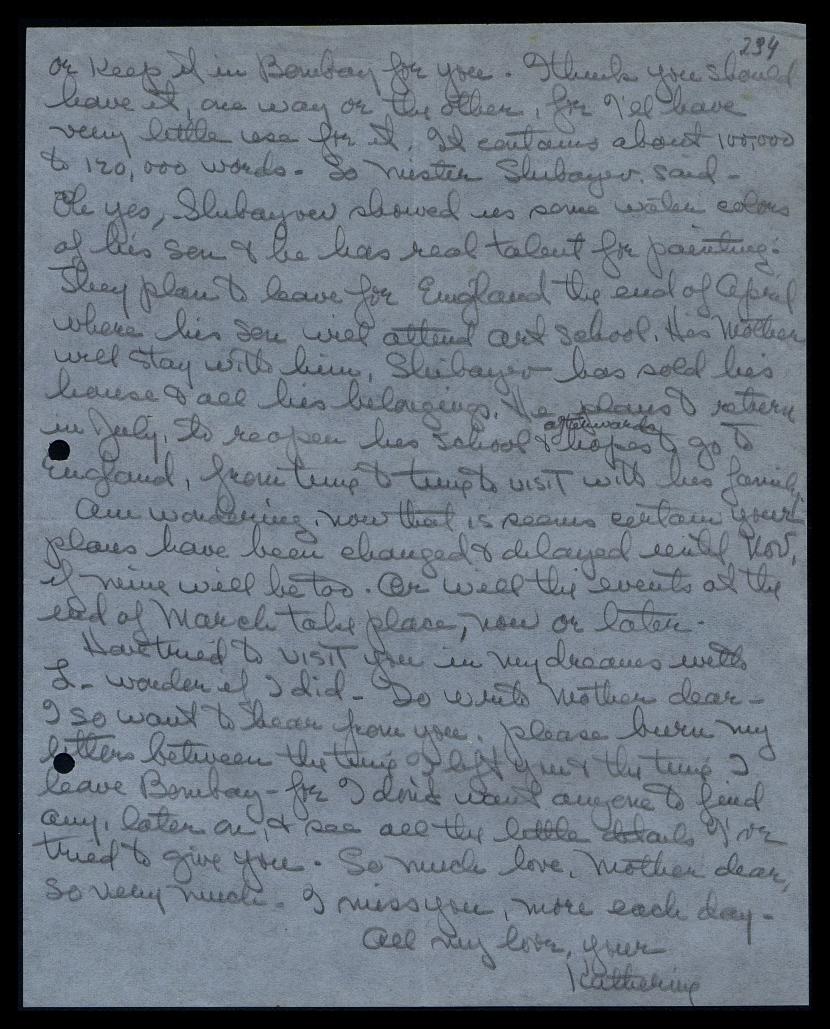 234
or keep it in Bombay for you. I think you should
have it, one way or the other, for I'll have
very little use for it. It contains about 100,000
to 120,000 words. So Mister Shibayev said -
Oh yes, Shibayev showed us some water colors
of his son & he has real talent for painting.
They plan to leave for England the end of April
where his son will attend art school. His Mother
will stay with him, Shibayev has sold his
house & all his belongings. He plans to return
in July, to reopen his school & afterwards hopes to go to
England, from time to time to visit with his family.
Am wondering, now that is seems certain your
plans have been changed & delayed until Nov,
if mine will be too. Or will the events at the
end of March take place, now or later.
Have tried to visit you in my dreams with
L- wonder if I did - Do write Mother dear -
I so want to hear from you. please burn my
letters between the time I left you & the time I
leave Bombay - for I don't want anyone to find
any, later on, & see all the little details I've
tried to give you. So much love, Mother dear,
so very much - I miss you, more each day -
All my love, your
Katherine